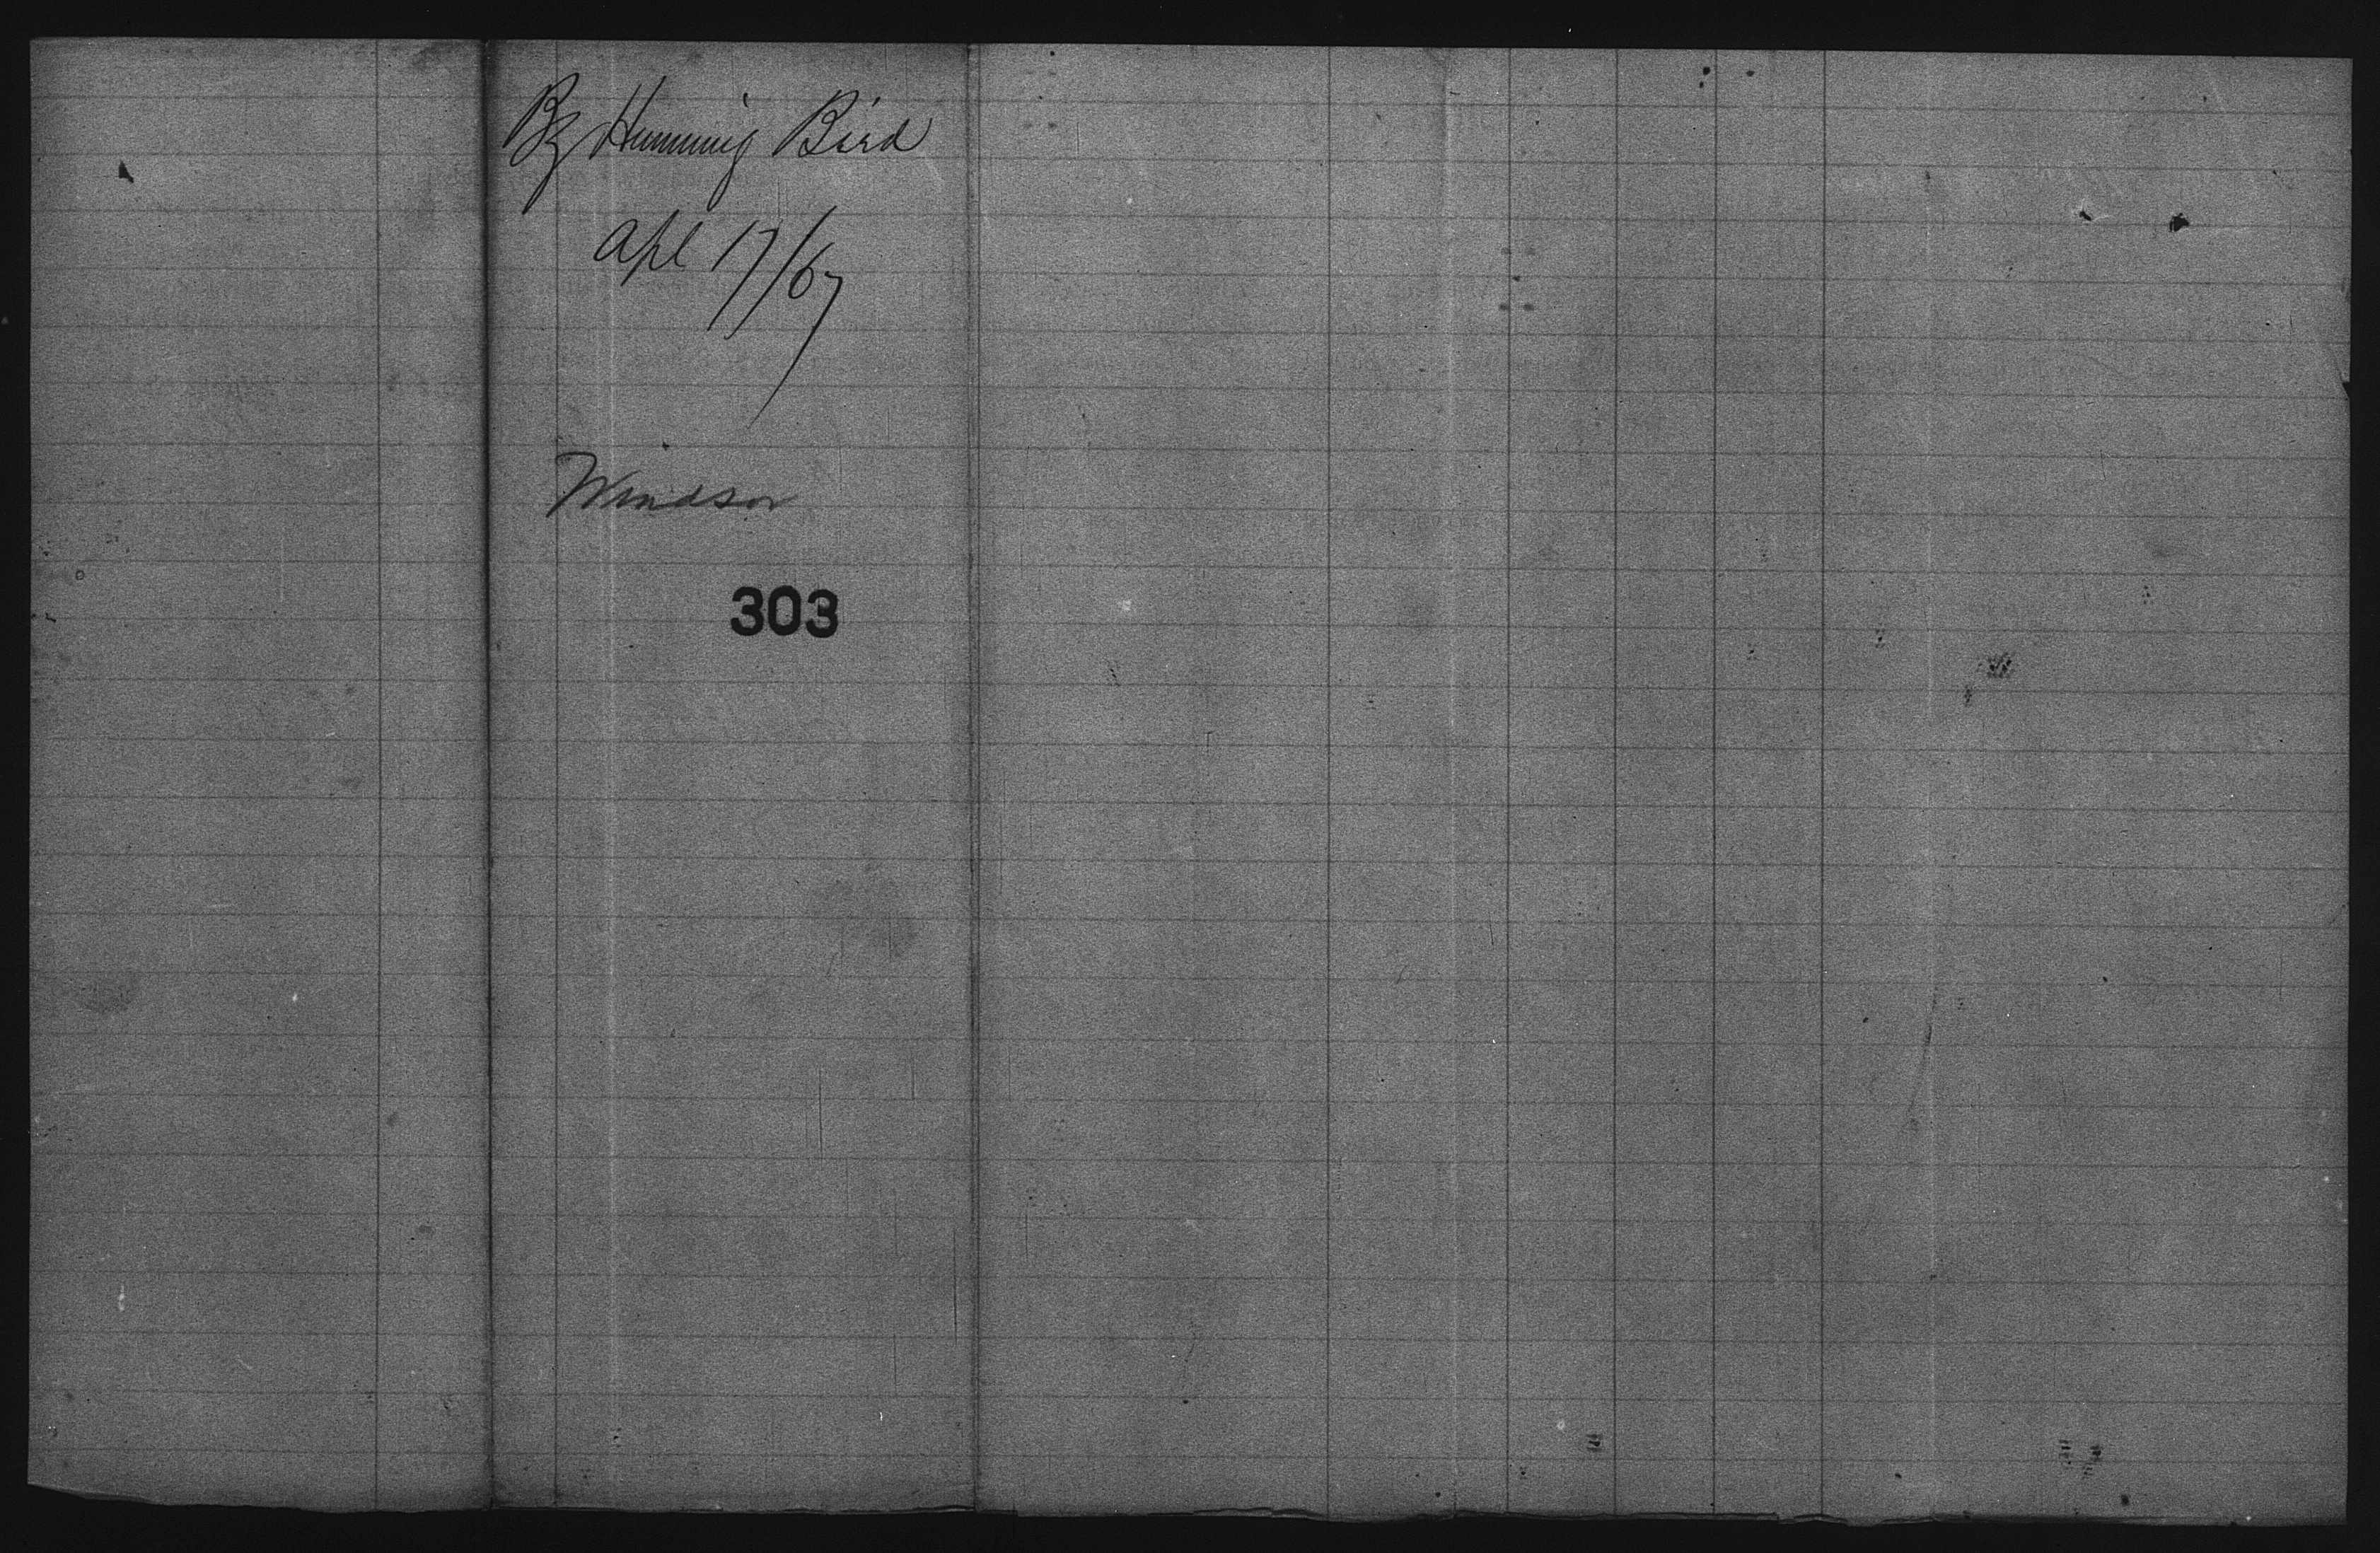 Bg Humming Bird
Apl 17/67
Windsor
303